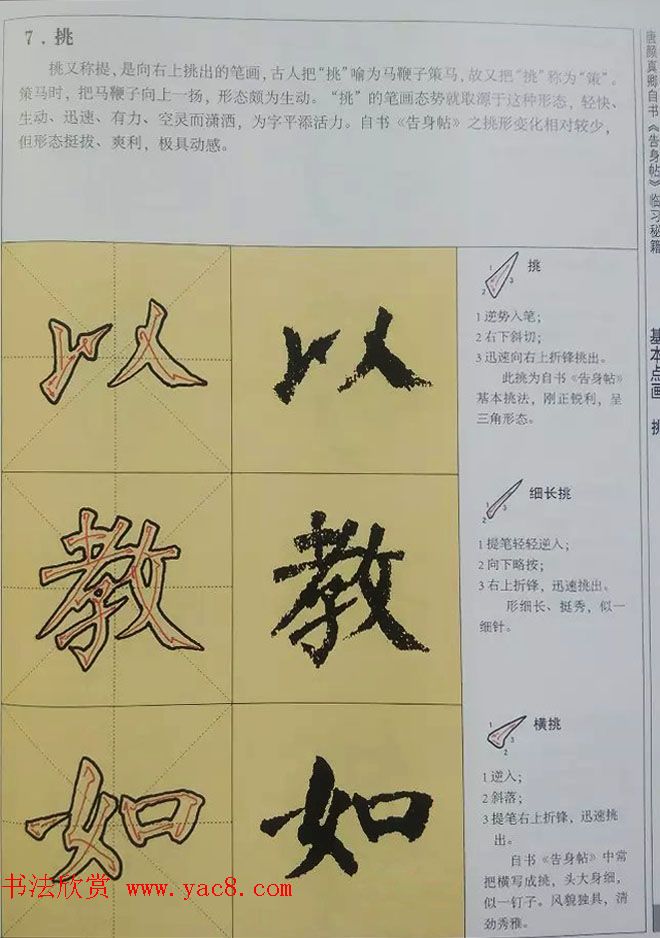 7.挑
挑又称提，是向右上挑出的笔画，古人把“挑”喻为马鞭子策马，故又把“挑”称为“策”。
策马时，把马鞭子向上一扬，形态颇为生动。“挑”的笔画态势就取源于这种形态，轻快、
生动、迅速、有力、空灵而潇洒，为字平添活力。自书《告身帖》之挑形变化相对较少，
但形态挺拔、爽利，极具动感。
以
以
1
2
3
挑
1逆势入笔；
2右下斜切；
3迅速向右上折锋挑出。
此挑为自书《告身帖》
基本挑法，刚正锐利，呈
三角形态。
教
教
1
2
3
细长挑
1提笔轻轻逆入；
2向下略按；
3右上折锋，迅速挑出。
形细长、挺秀，似一
细针。
如
如
1
2
3
横挑
1逆入；
2斜落；
3提笔右上折锋，迅速挑
出。
自书《告身帖》中常
把横写成挑，头大身细，
似一钉子。风貌独具，清
劲秀雅。
唐颜真卿自书《告身帖》临习秘籍
基本点画 挑
书法欣赏 www.yac8.com